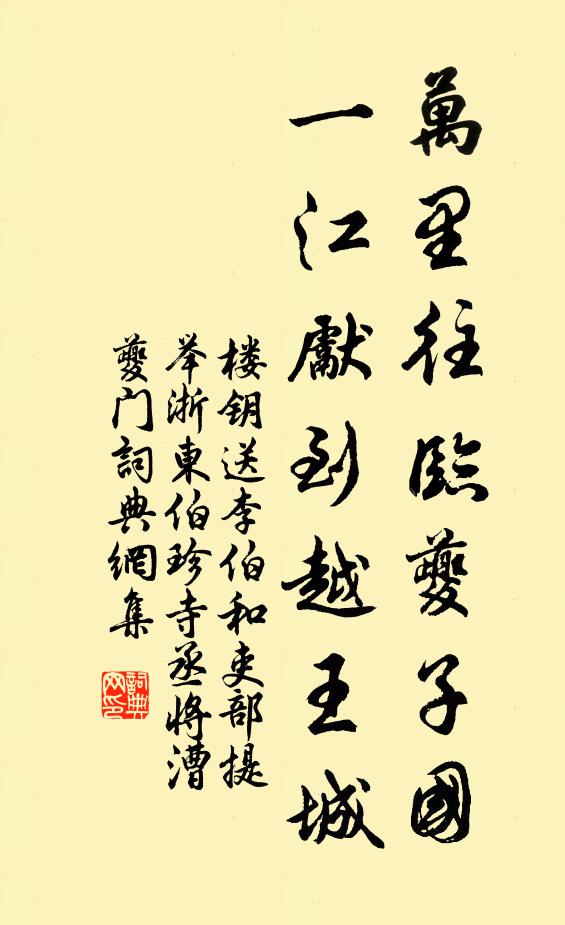 萬里往臨夔子國
一江獻到越王城
楼钥送李伯和吏部提
举浙東伯珍寺丞将漕
夔门詞典網集
詞典网印